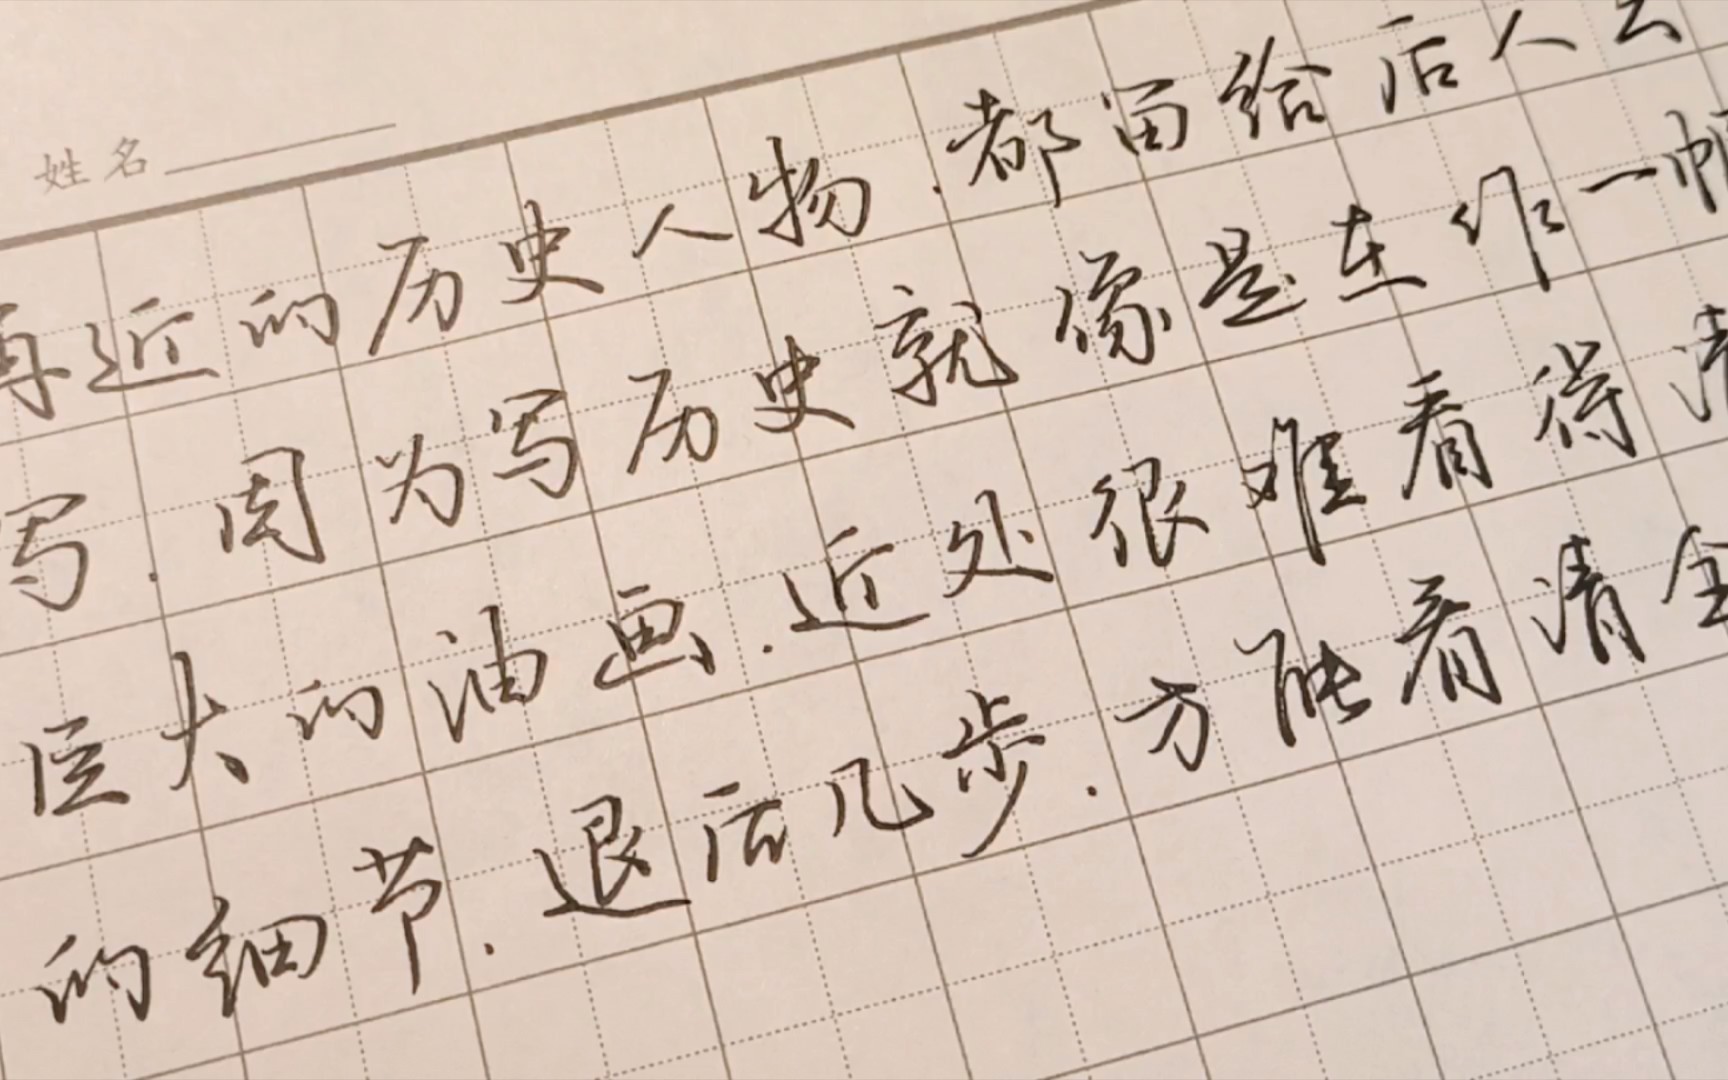 姓名
再近的历史人物.都留给后人去
写.因为写历史就像是在作一幅
巨大的油画.近处很难看得清
的细节.退后几步.方能看清全